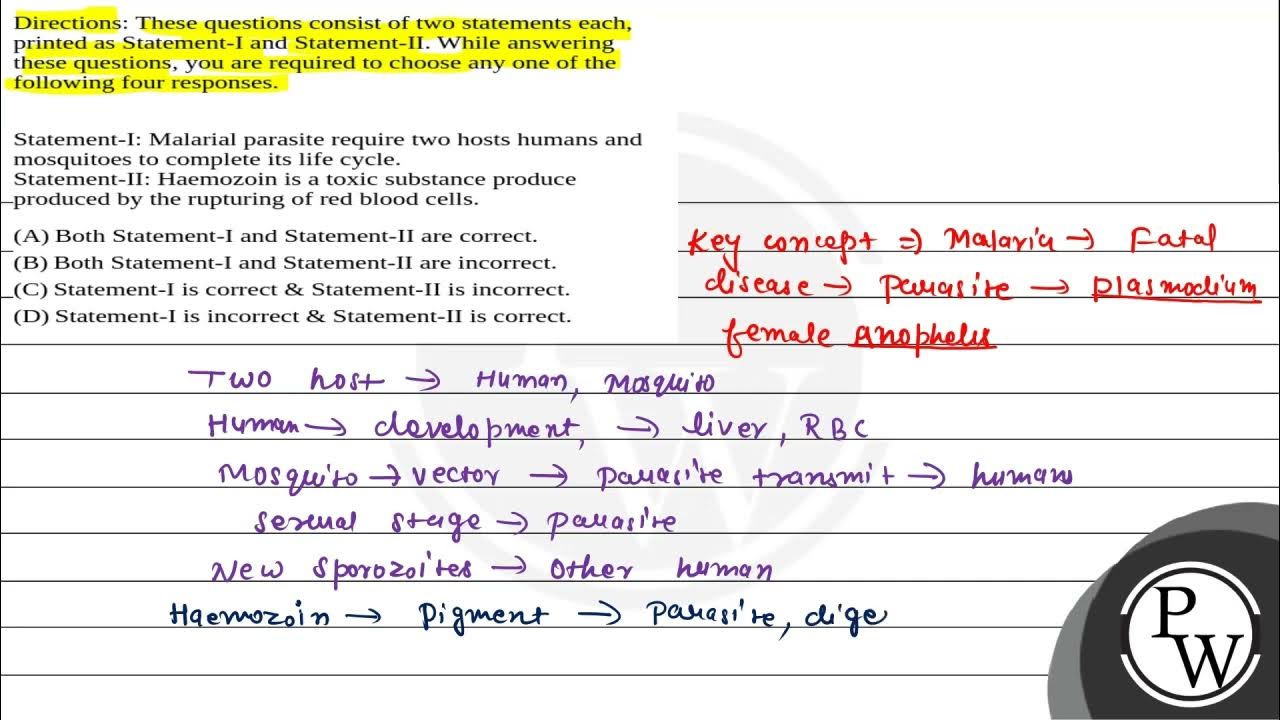 Directions: These questions consist of two statements each,
printed as Statement-I and Statement-II. While answering
these questions, you are required to choose any one of the
following four responses.
Statement-I: Malarial parasite require two hosts humans and
mosquitoes to complete its life cycle.
Statement-II: Haemozoin is a toxic substance produce
produced by the rupturing of red blood cells.
(A) Both Statement-I and Statement-II are correct.
(B) Both Statement-I and Statement-II are incorrect.
(C) Statement-I is correct & Statement-II is incorrect.
(D) Statement-I is incorrect & Statement-II is correct.
Key concept ⇒ Malaria → Fatal
disease → Parasite → Plasmodium
female Anopheles
Two host → Human, Mosquito
Human → development, → liver, RBC
Mosquito → vector → Parasite transmit → human
Sexual stage → Parasite
New Sporozoites → Other human
Haemozoin → Pigment → Parasite, dige
P
W